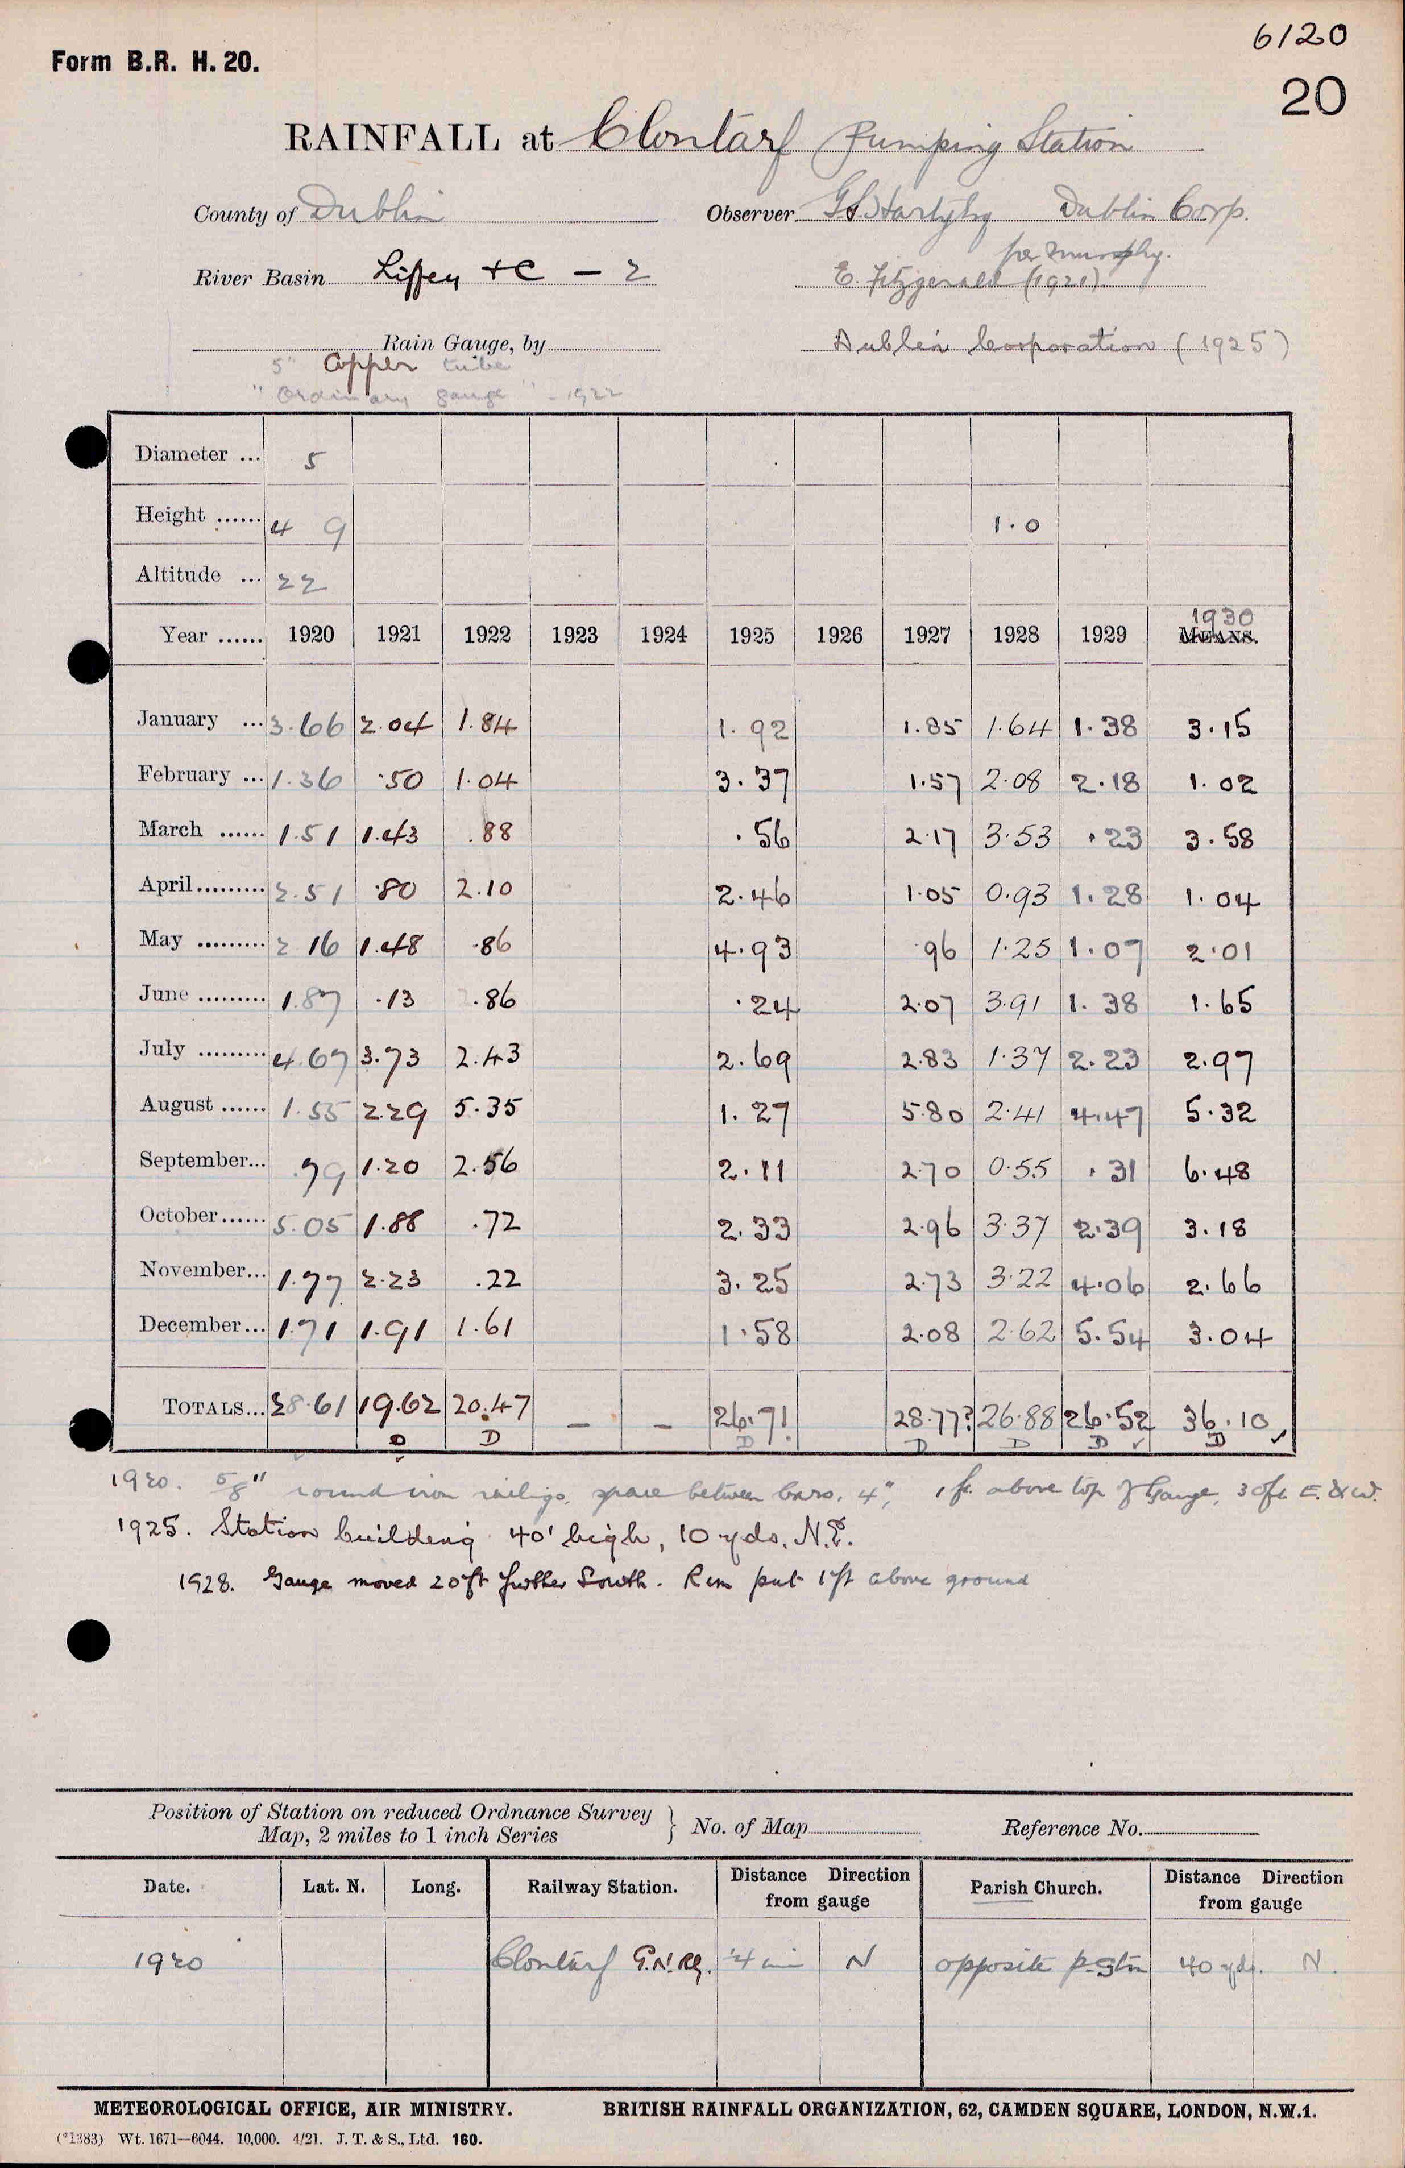 6120
Form B.R. H. 20.
20
RAINFALL at Clontarf Pumping Station
County of Dublin Observer Dublin Corp.
per Murphy.
River Basin Liffey +C — 2 E. Fitzgerald (1921).
Rain Gauge, by Dublin Corporation (1925)
5" Copper tube
"Ordinary gauge" - 1922
Diameter ... 5
Height ...... 4 9 1.0
Altitude ... 22
1930
Year ...... 1920 1921 1922 1923 1924 1925 1926 1927 1928 1929 MEANS.
January ... 3.66 2.04 1.84 1.92 1.85 1.64 1.38 3.15
February ... 1.36 .50 1.04 3.37 1.57 2.08 2.18 1.02
March ...... 1.51 1.43 .88 .56 2.17 3.53 .23 3.58
April......... 2.51 .80 2.10 2.46 1.05 0.93 1.28 1.04
May ......... 2 16 1.48 .86 4.93 .96 1.25 1.07 2.01
June ......... 1.87 .13 .86 .24 2.07 3.91 1.38 1.65
July ......... 4.67 3.73 2.43 2.69 2.83 1.37 2.23 2.97
August ...... 1.55 2.29 5.35 1.27 5.80 2.41 4.47 5.32
September... .79 1.20 2.56 2.11 2.70 0.55 .31 6.48
October...... 5.05 1.88 .72 2.33 2.96 3.37 2.39 3.18
November... 1.77 2.23 .22 3.25 2.73 3.22 4.06 2.66
December... 1.71 1.91 1.61 1.58 2.08 2.62 5.54 3.04
TOTALS... 28.61 19.62 20.47 — — 26.71 28.77? 26.88 26.52 36.10
D D D D D D D
1920. 5/8" round iron railings, space between bars, 4", 1 ft. above top of Gauge, 30ft E. & W.
1925. Station building 40' high, 10 yds. N.E.
1928. Gauge moved 20ft further South. Rim put 1ft above ground
Position of Station on reduced Ordnance Survey Map, 2 miles to 1 inch Series } No. of Map Reference No.
Date. Lat. N. Long. Railway Station. Distance Direction from gauge Parish Church. Distance Direction from gauge
1920 Clontarf G.N.Ry. N opposite p. stn 40 yds. N.
METEOROLOGICAL OFFICE, AIR MINISTRY. BRITISH RAINFALL ORGANIZATION, 62, CAMDEN SQUARE, LONDON, N.W.1.
(*1383) Wt. 1671—6044. 10,000. 4/21. J. T. & S., Ltd. 160.